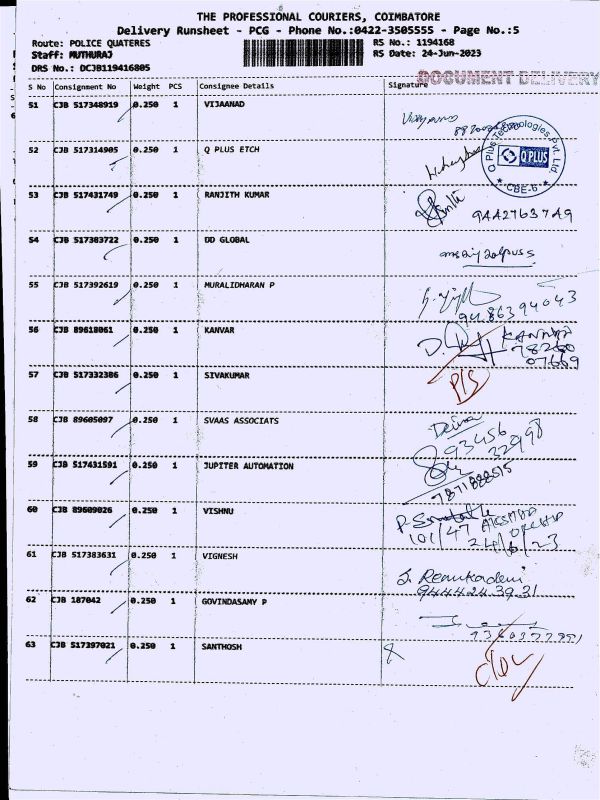 THE PROFESSIONAL COURIERS, COIMBATORE
Delivery Runsheet - PCG - Phone No.:0422-3505555 - Page No.:5
Route: POLICE QUATERES RS No.: 1194168
Staff: MUTHURAJ RS Date: 24-Jun-2023
DRS No.: DCJB119416805
DOCUMENT DELIVERY
S No Consignment No Weight PCS Consignee Details Signature
51 CJB 517348919 0.250 1 VIJAANAD
52 CJB 517314905 0.250 1 Q PLUS ETCH
Q Plus Technologies Pvt. Ltd
Q PLUS
CBE-6
53 CJB 517431749 0.250 1 RANJITH KUMAR 9442763749
54 CJB 517383722 0.250 1 DD GLOBAL
55 CJB 517392619 0.250 1 MURALIDHARAN P 9486394043
56 CJB 89618061 0.250 1 KANVAR KANNAN
78260
07669
57 CJB 517332386 0.250 1 SIVAKUMAR P/S
58 CJB 89605097 0.250 1 SVAAS ASSOCIATS
93456
32998
59 CJB 517431591 0.250 1 JUPITER AUTOMATION
7871888515
60 CJB 89609026 0.250 1 VISHNU
101/47
24/6/23
61 CJB 517383631 0.250 1 VIGNESH
J. Renukadevi
9444243931
62 CJB 187042 0.250 1 GOVINDASAMY P
63 CJB 517397021 0.250 1 SANTHOSH